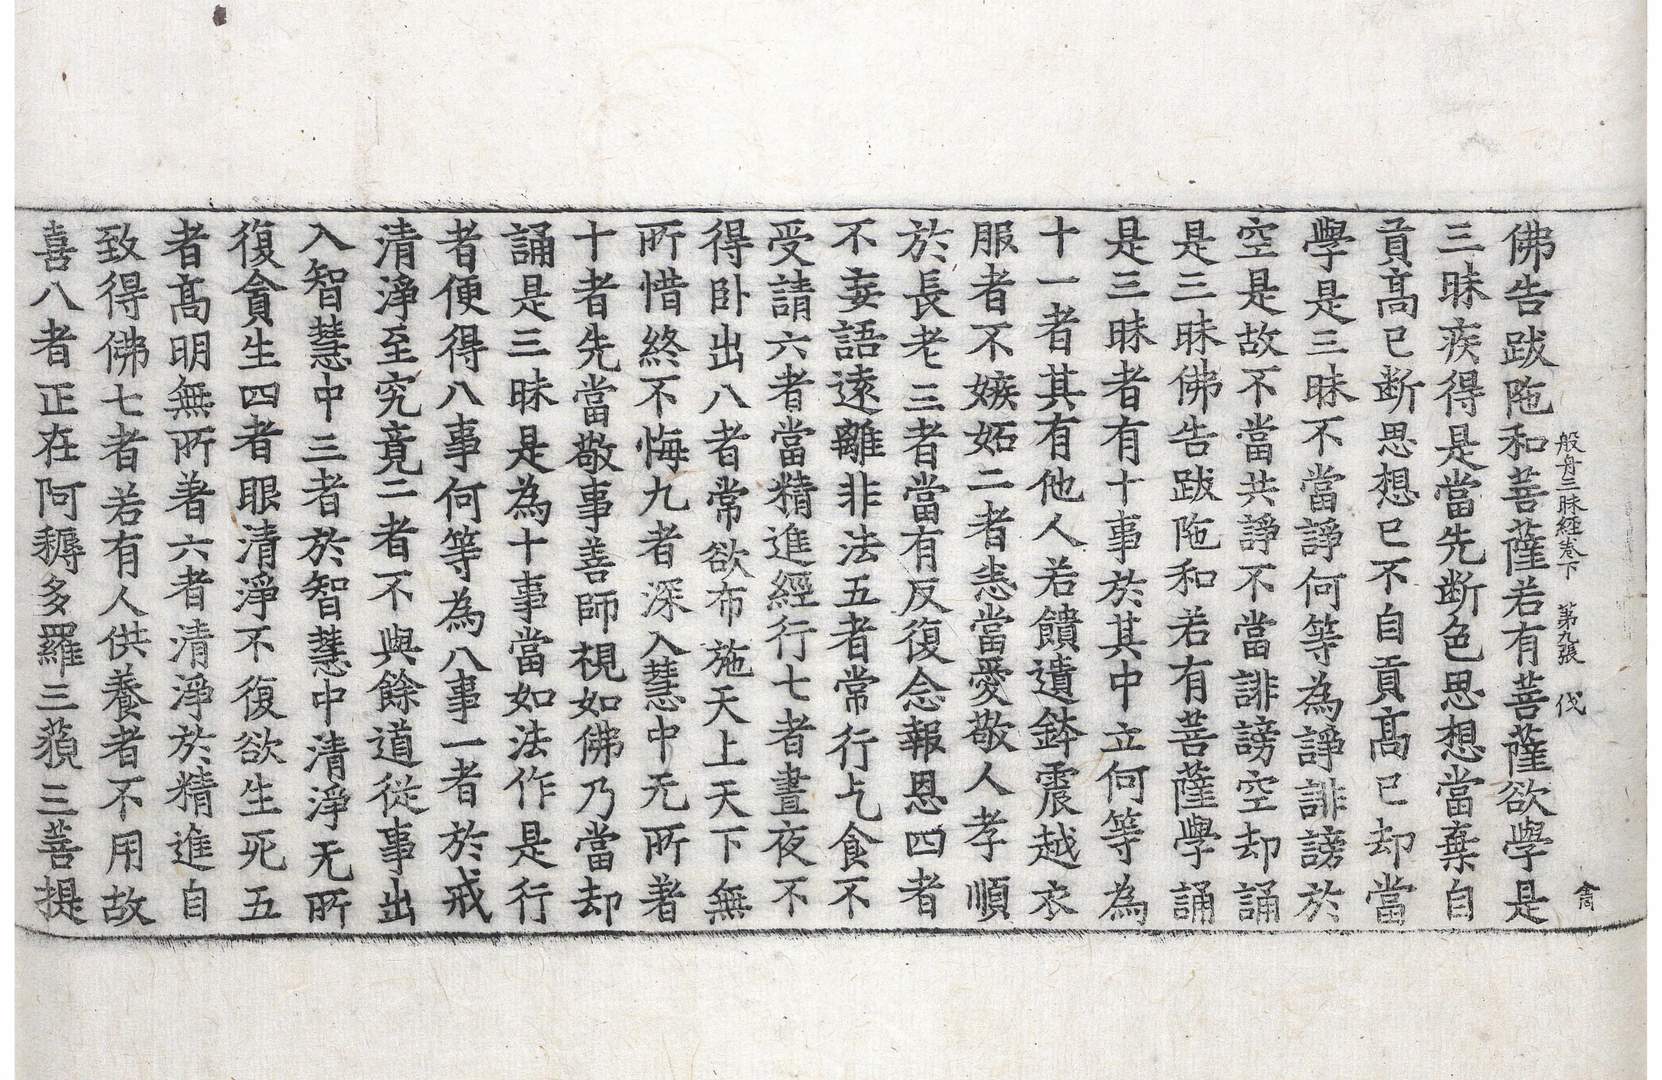 般舟三昧經卷下　第九張　伐
佛告跋陁和菩薩若有菩薩欲學是
三昧疾得是當先断色思想當棄自
貢髙已断思想已不自貢髙已却當
學是三昧不當諍何等為諍誹謗於
空是故不當共諍不當誹謗空却誦
是三昧佛告跋陁和若有菩薩學誦
是三昧者有十事於其中立何等為
十一者其有他人若饋遺鉢震越衣
服者不嫉妬二者悉當愛敬人孝順
於長老三者當有反復念報恩四者
不妄語遠離非法五者常行乞食不
受請六者當精進經行七者晝夜不
得卧出八者常欲布施天上天下無
所惜終不悔九者深入慧中无所著
十者先當敬事善師視如佛乃當却
誦是三昧是為十事當如法作是行
者便得八事何等為八事一者於戒
清淨至究竟二者不與餘道從事出
入智慧中三者於智慧中清淨无所
復貪生四者眼清淨不復欲生死五
者髙明無所著六者清淨於精進自
致得佛七者若有人供養者不用故
喜八者正在阿耨多羅三藐三菩提